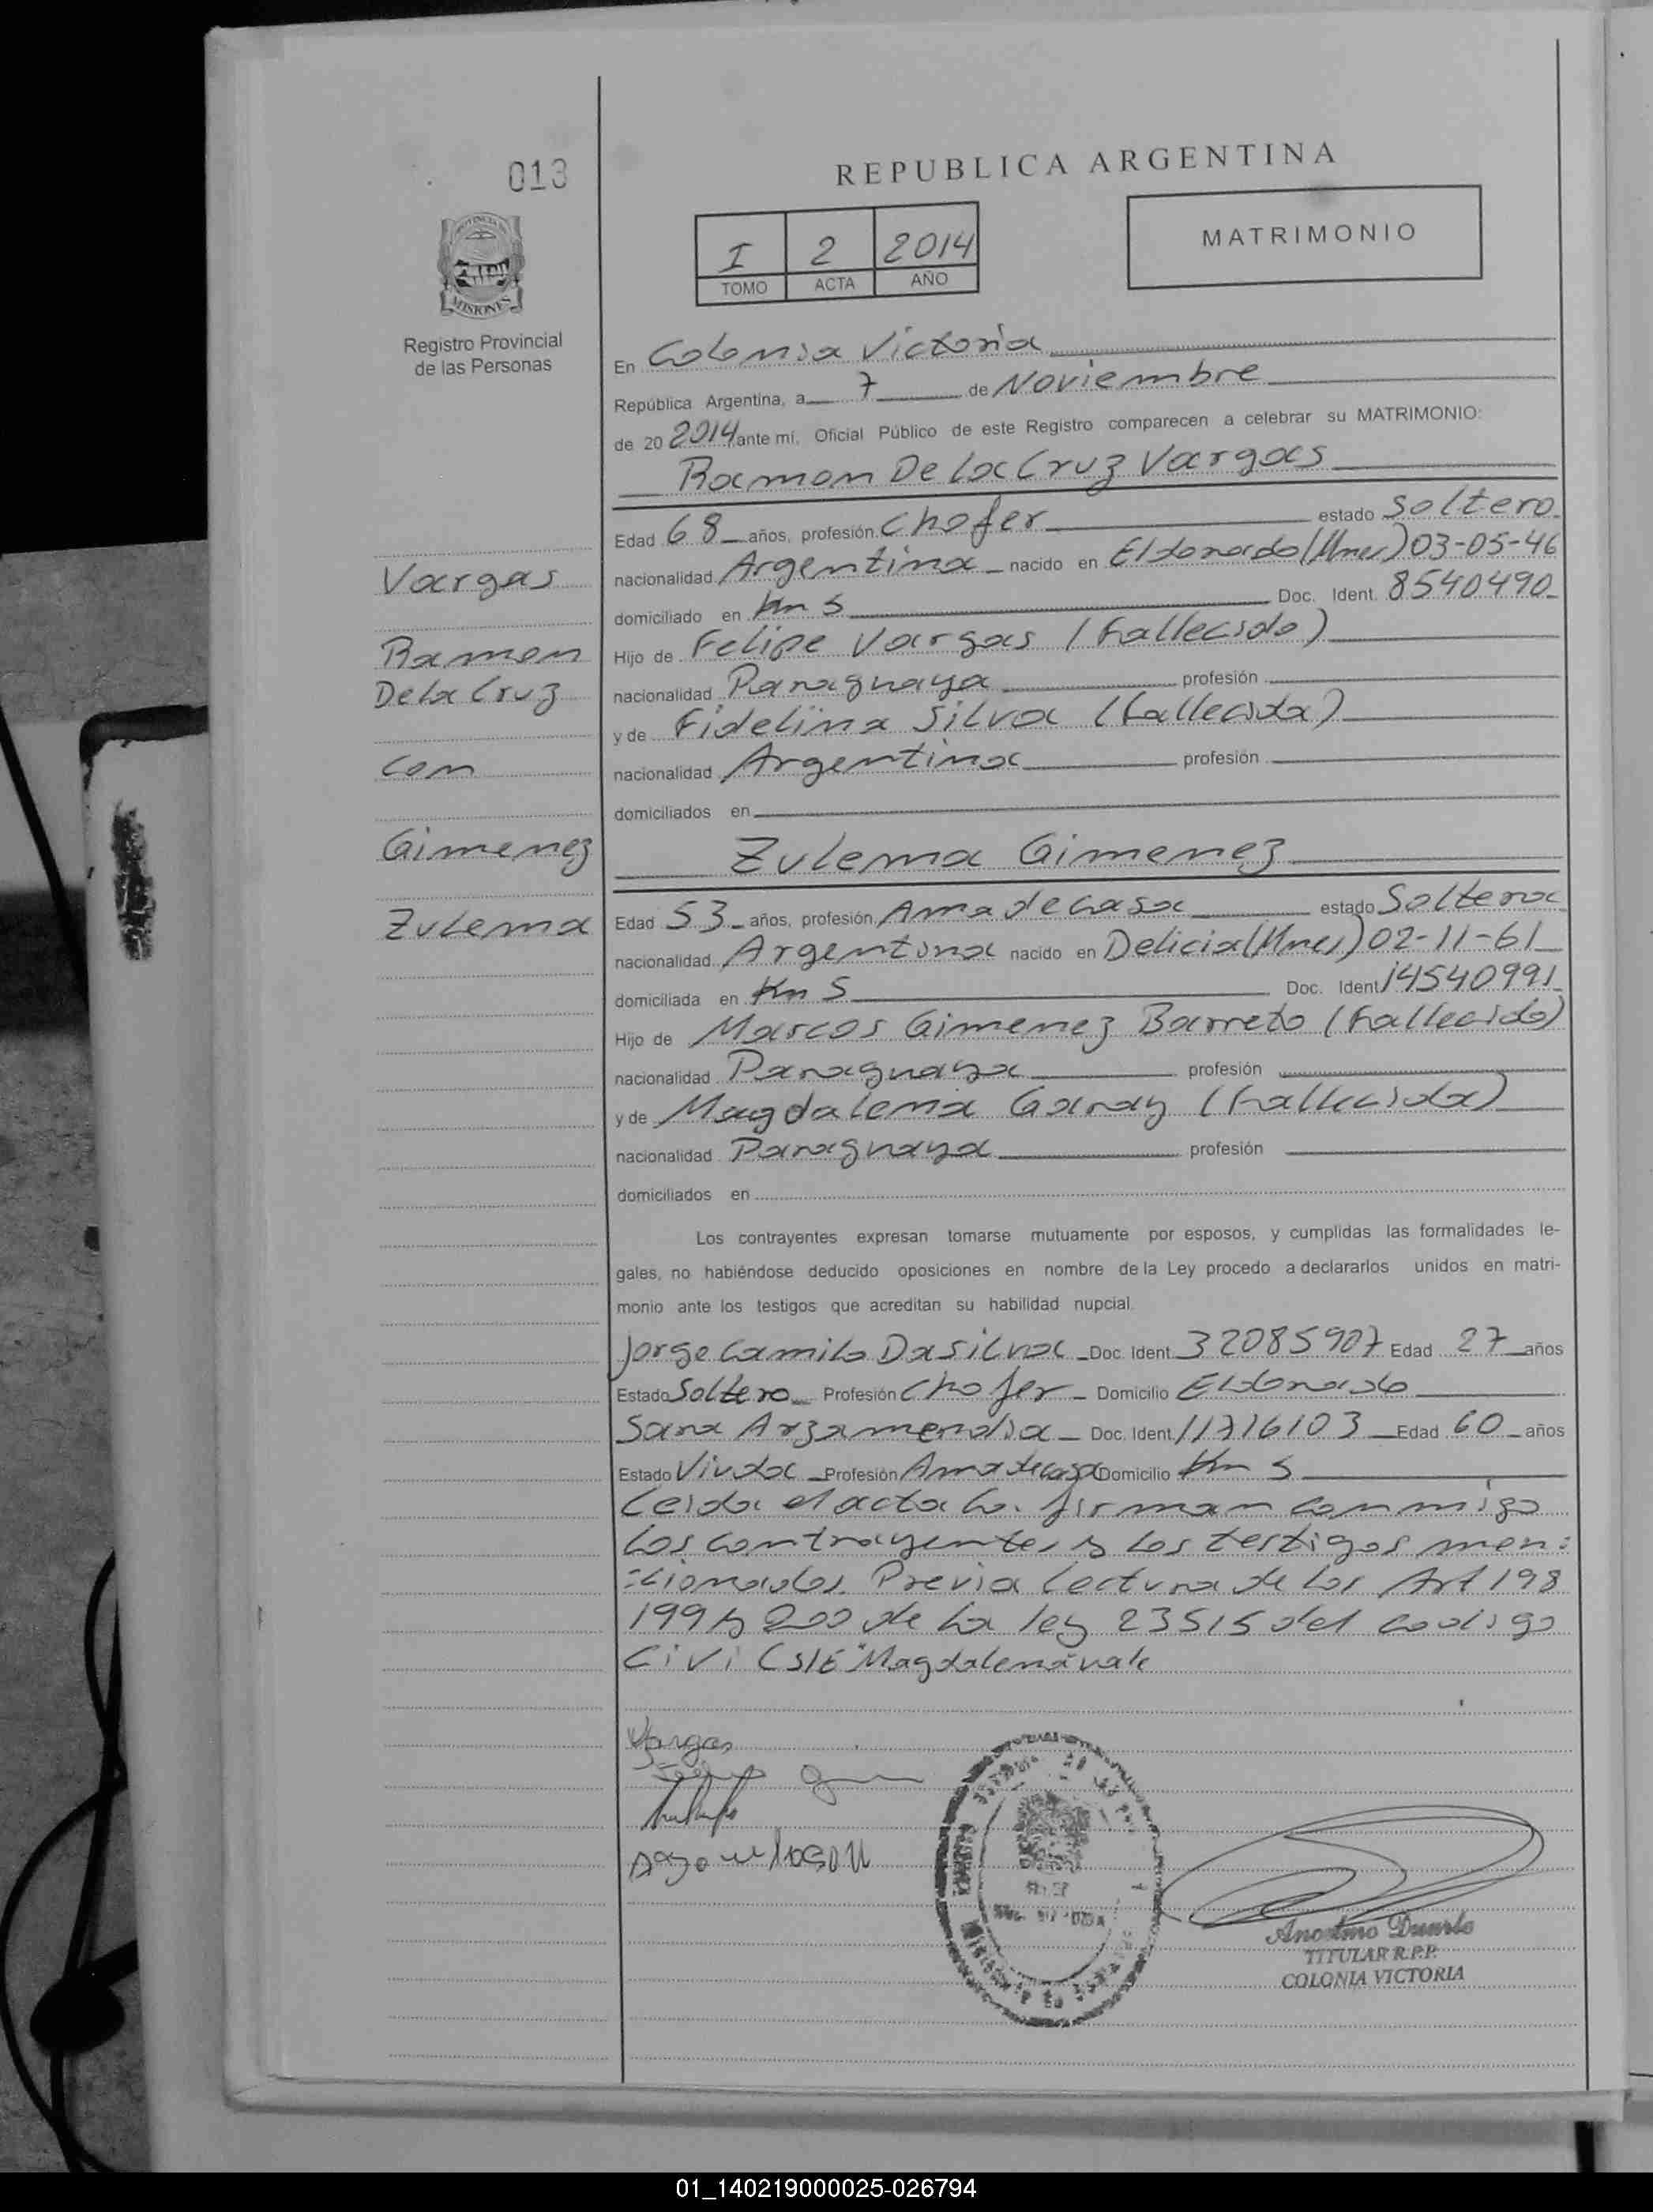 013
PROVINCIA DE
MISIONES
Registro Provincial
de las Personas
REPUBLICA ARGENTINA
I 2 2014
TOMO ACTA AÑO
MATRIMONIO
En Colonia Victoria
República Argentina, a 7 de Noviembre
de 20 2014 ante mí, Oficial Público de este Registro comparecen a celebrar su MATRIMONIO:
Ramon De la Cruz Vargas
Edad 68 años, profesión Chofer estado Soltero
nacionalidad Argentina nacido en Eldorado (Mnes) 03-05-46
domiciliado en Km 5 Doc. Ident. 8540490
Hijo de Felipe Vargas (Fallecido)
nacionalidad Paraguaya profesión
y de Fidelina Silva (Fallecida)
nacionalidad Argentina profesión
domiciliados en
Zulema Gimenez
Edad 53 años, profesión Ama de casa estado Soltera
nacionalidad Argentina nacido en Delicia (Mnes) 02-11-61
domiciliada en Km 5 Doc. Ident 14540991
Hijo de Marcos Gimenez Barreto (Fallecido)
nacionalidad Paraguaya profesión
y de Magdalena Garay (Fallecida)
nacionalidad Paraguaya profesión
domiciliados en
Vargas
Ramon
De la Cruz
con
Gimenez
Zulema
Los contrayentes expresan tomarse mutuamente por esposos, y cumplidas las formalidades le-
gales, no habiéndose deducido oposiciones en nombre de la Ley procedo a declararlos unidos en matri-
monio ante los testigos que acreditan su habilidad nupcial.
Jorge Camilo Da Silva Doc. Ident. 32085907 Edad 27 años
Estado Soltero Profesión Chofer Domicilio Eldorado
Sara Arzamendia Doc. Ident. 11716103 Edad 60 años
Estado Viuda Profesión Ama de casa Domicilio Km 5
Leida el acta la firman conmigo
los contrayentes y los testigos men=
=cionados. Previa lectura de los Art 198
199 y 200 de la ley 23515 del codigo
Civi (S/E "Magdalena" vale
Vargas
Anostmo Duarte
TITULAR R.P.P.
COLONIA VICTORIA
01_140219000025-026794